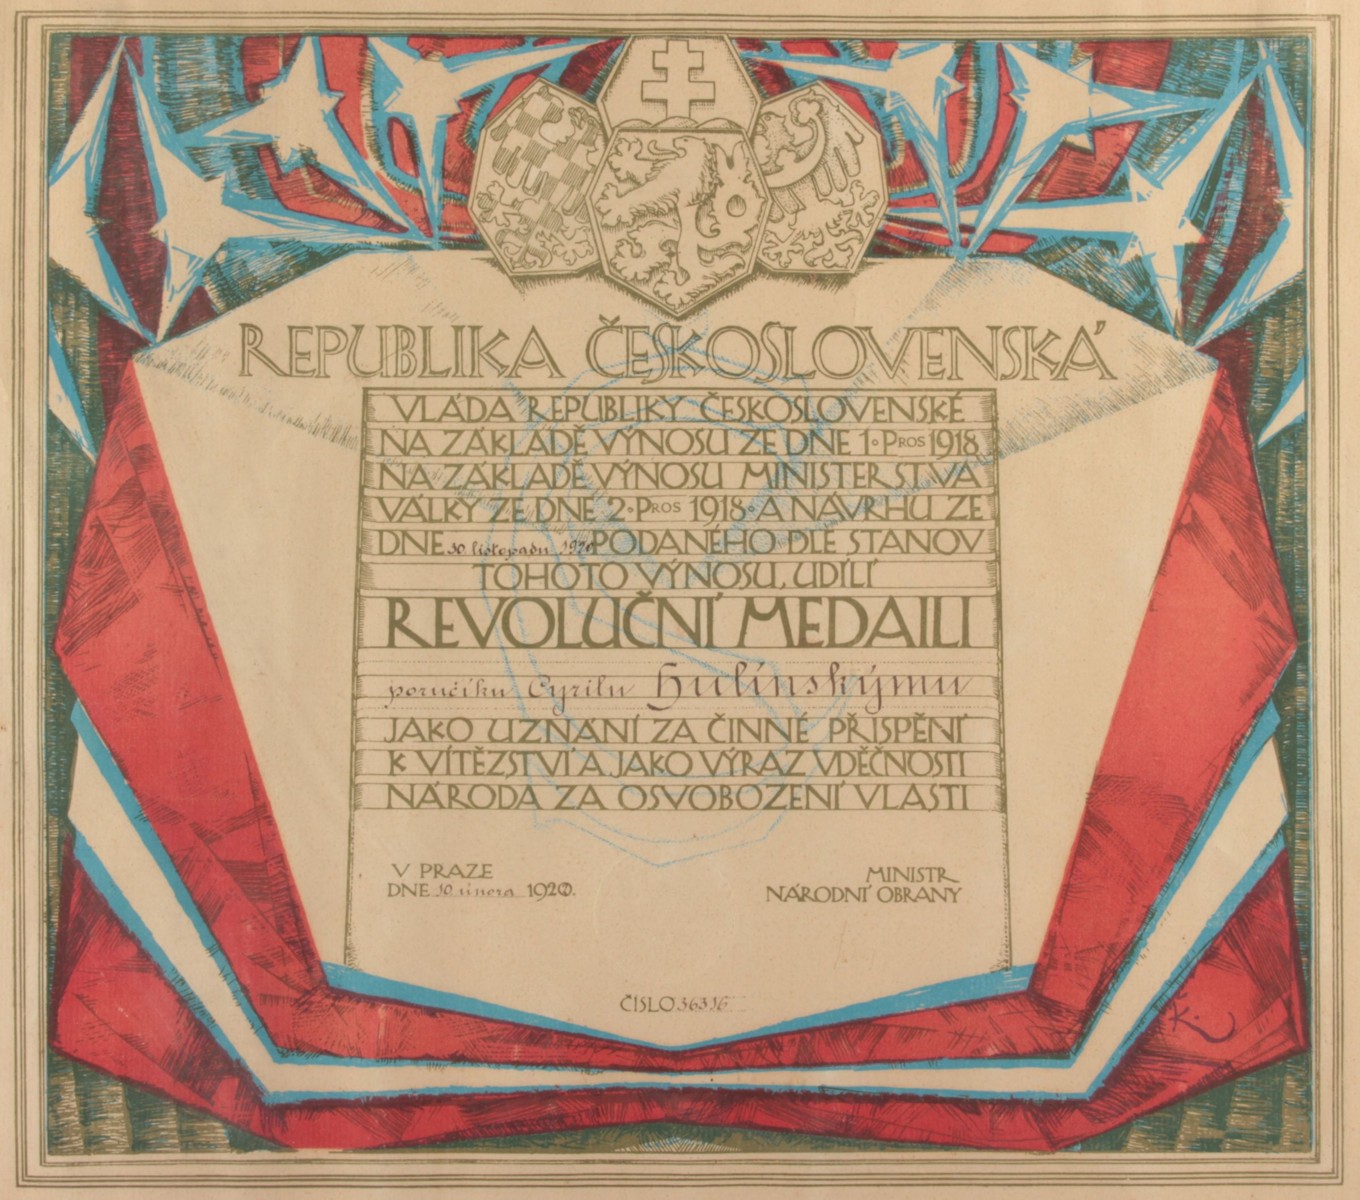 REPUBLIKA ČESKOSLOVENSKÁ
VLÁDA REPUBLIKY ČESKOSLOVENSKÉ
NA ZÁKLADĚ VÝNOSU ZE DNE 1. PROS 1918
NA ZÁKLADĚ VÝNOSU MINISTERSTVA
VÁLKY ZE DNE 2. PROS 1918. A NÁVRHU ZE
DNE 30 listopadu 1920 PODANÉHO DLE STANOV
TOHOTO VÝNOSU, UDÍLÍ
REVOLUČNÍ MEDAILI
poručíku Cyrilu Hulínskýmu
JAKO UZNÁNÍ ZA ČINNÉ PŘISPĚNÍ
K VÍTĚZSTVÍ A JAKO VÝRAZ VDĚČNOSTI
NÁRODA ZA OSVOBOZENÍ VLASTI
V PRAZE
DNE 10 února 1920.
MINISTR
NÁRODNÍ OBRANY
ČÍSLO 36316
K.